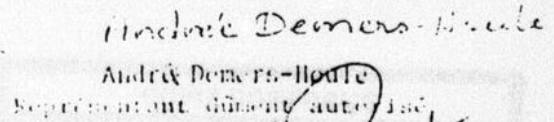 Andrée Demers-Houle
Andrée Demers-Houle
Représentant dûment autorisé